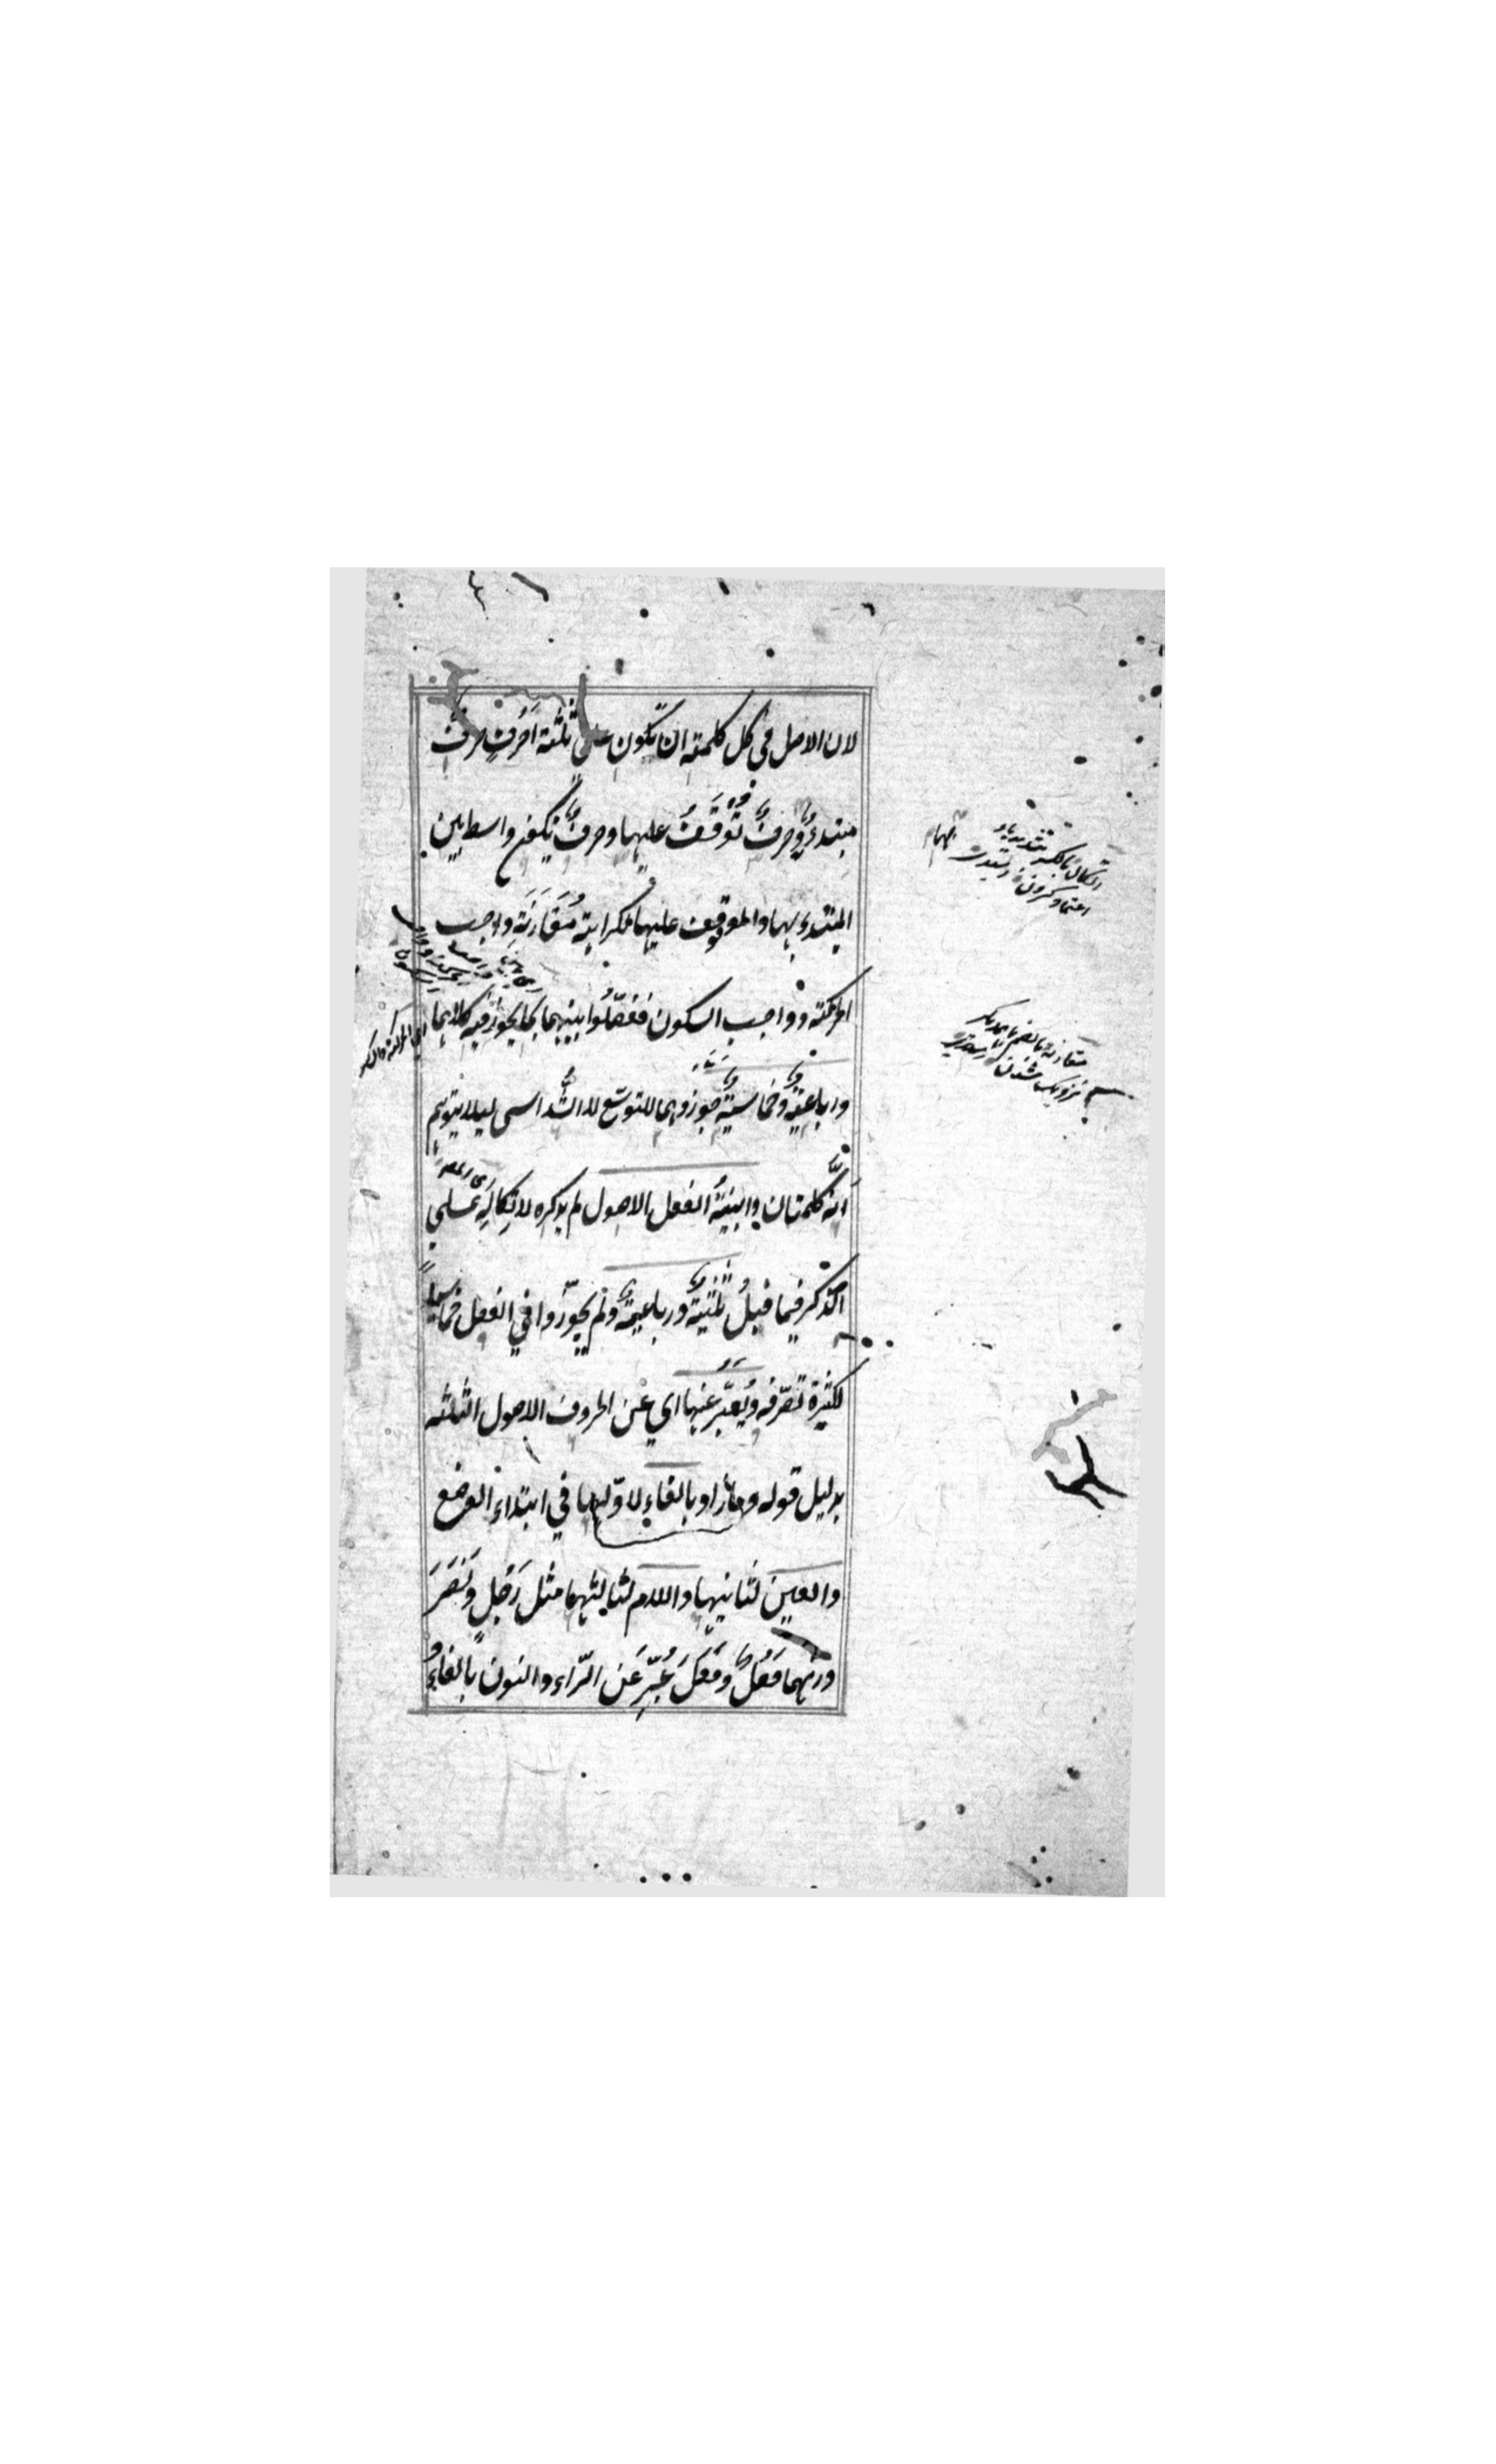 لان الاصل في كل كلمته ان تكون على ثلثة اَحْرُفٍ حرفٌ
مبتدءٌ وحرفٌ تُوْقَفُ عليها وحرفٌ يكون واسطا بين
المبتدء بها والموقوف عليها لكراهة مُقَارَنَةِ واجب
الحركته وواجب السكون فَفَصَّلُوا بينهما بما يجوز فيه كلاهما
ورباعيّةٌ وخماسيةٌ جوزوهما للتوسّع لا السُّداسي ليلا يتوهم
اَنّه كلمتان وابنيةُ الفعل الاصول لم يذكره لاتِّكالِه على
الذكر فيما قبلُ ثلثيّةٌ ورباعيةٌ ولم يجوّزوا في الفعل خماسيا
لكثرة تصرّفه ويُعَبَّر عنها اي عن الحروف الاصول الثلثه
بدليل قوله وما زاد بالفاءِ لاوّلها في ابتداء الوضع
والعين لثانيها واللام لثالثها مثل رَجُلٍ ونَصَرَ
وزنهما فَعُلٌ وفَعَلَ عُبِّرَ عَن الرّاء والنون بالفاءِ و
اتكال بالكسر تشديد تاء
اعتماد كردن
مقارنة بالضم با يكديگر
نزديك شدن
اي الحركة والسكون